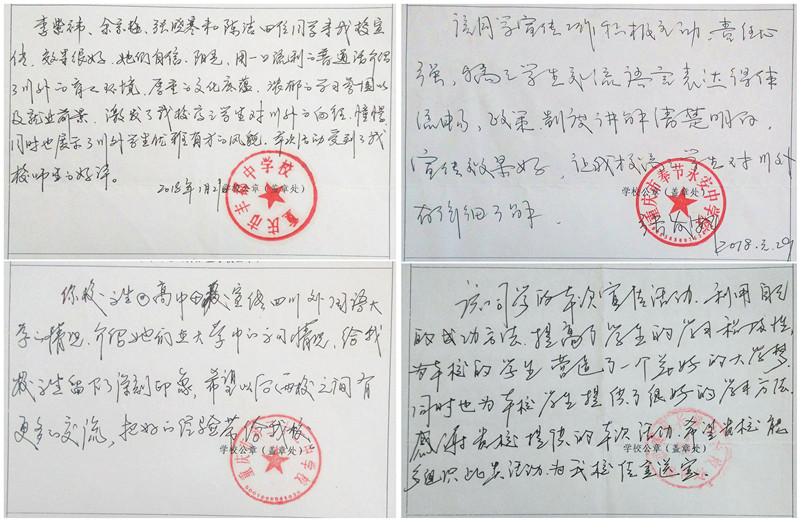 李紫祎、余京梅、张晓寒和陈洁四位同学来我校宣
传,效果很好。她们自信、阳光,用一口流利的普通话介绍
了川外的育人环境、厚重的文化底蕴、浓郁的学习氛围以
及就业前景,激发了我校高三学生对川外的向往、憧憬,
同时也展示了川外学生优雅有才的风貌。本次活动受到了我
校师生的好评。
2018年1月29日
学校公章(盖章处)
重庆市丰都中学校
该同学宣传工作积极主动、责任心
强,与高三学生交流语言表达得体
流畅,政策、制度讲解清楚明白
宣传效果好,让我校高三学生对川外
有详细了解。
学校公章(盖章处)
重庆市奉节永安中学校
2018.2.29
你校学生回高中母校宣传四川外国语大
学的情况,介绍她们在大学中的学习情况,给我
校学生留下了深刻印象,希望以后两校之间有
更多的交流,把好的经验带给我校。
学校公章(盖章处)
该同学的本次宣传活动,利用自己
的成功方法,提高了学生的学习积极性,
为本校的学生营造了一个美好的大学梦,
同时也为本校学生提供了很好的学习方法。
感谢贵校提供的本次活动,希望贵校能
多组织此类活动,为我校传宝送宝。
学校公章(盖章处)